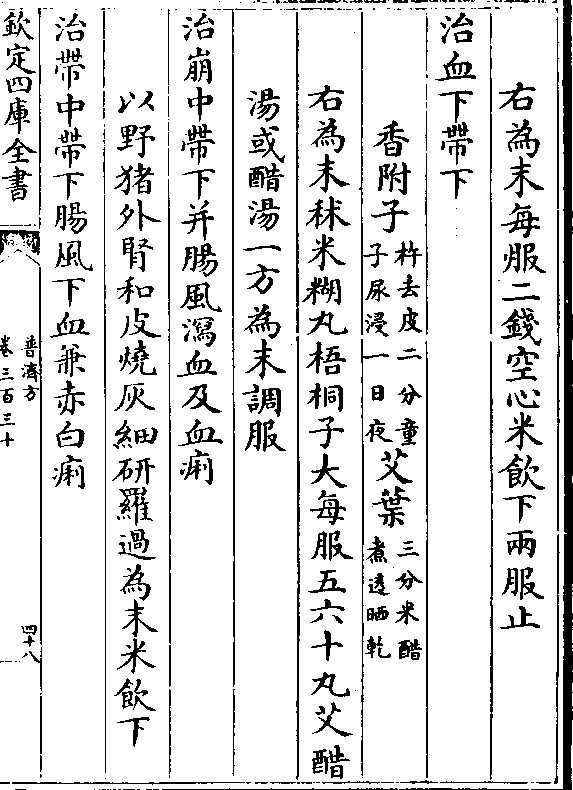 右為末每服二錢空心米飲下兩服止
治血下帶下
香附子杵去皮二分童子尿浸一日夜艾葉三分米醋煮透晒乾
右為末秫米糊丸梧桐子大每服五六十丸艾醋
湯或醋湯一方為末調服
治崩中帶下并腸風瀉血及血痢
以野猪外腎和皮燒灰細研羅過為末米飲下
治帶中帶下腸風下血兼赤白痢
欽定四庫全書
普濟方
卷三百三十
四十八